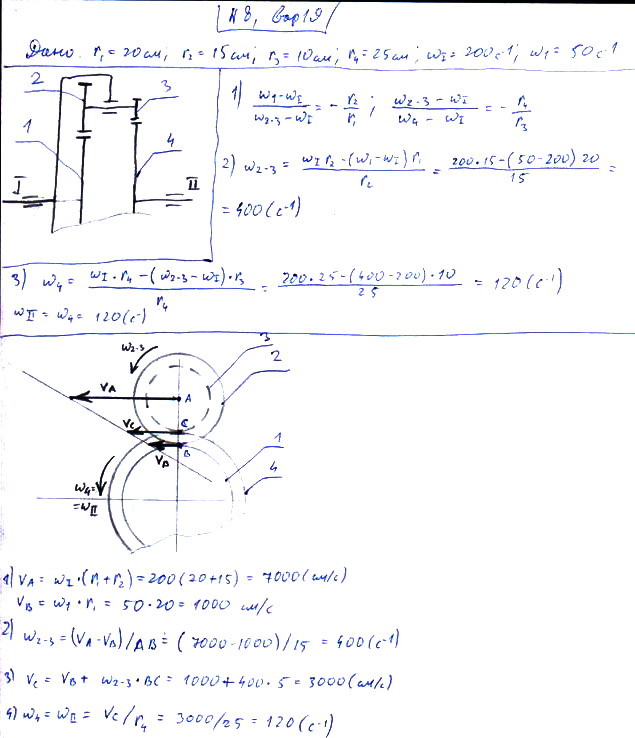 №8, вар19
Дано: r₁ = 20см; r₂ = 15см; r₃ = 10см; r₄ = 25см; ω_I = 200с⁻¹; ω₁ = 50с⁻¹
2
3
1
4
I
II
1) (ω₁-ω_I)/(ω₂₋₃-ω_I) = - r₂/r₁ ; (ω₂₋₃-ω_I)/(ω₄-ω_I) = - r₄/r₃
2) ω₂₋₃ = (ω_I r₂-(ω₁-ω_I) r₁)/r₂ = (200·15-(50-200)20)/15 =
= 400(с⁻¹)
3) ω₄ = (ω_I·r₄-(ω₂₋₃-ω_I)·r₃)/r₄ = (200·25-(400-200)·10)/25 = 120(с⁻¹)
ω_II = ω₄ = 120(с⁻¹)
ω₂₋₃
3
2
V_A
A
V_C
C
B
V_B
1
4
ω₄=
=ω_II
1) V_A = ω_I·(r₁+r₂) = 200(20+15) = 7000(см/с)
V_B = ω₁·r₁ = 50·20 = 1000 см/с
2) ω₂₋₃ = (V_A-V_B)/AB = (7000-1000)/15 = 400(с⁻¹)
3) V_C = V_B + ω₂₋₃·BC = 1000+400·5 = 3000(см/с)
4) ω₄ = ω_II = V_C/r₄ = 3000/25 = 120(с⁻¹)